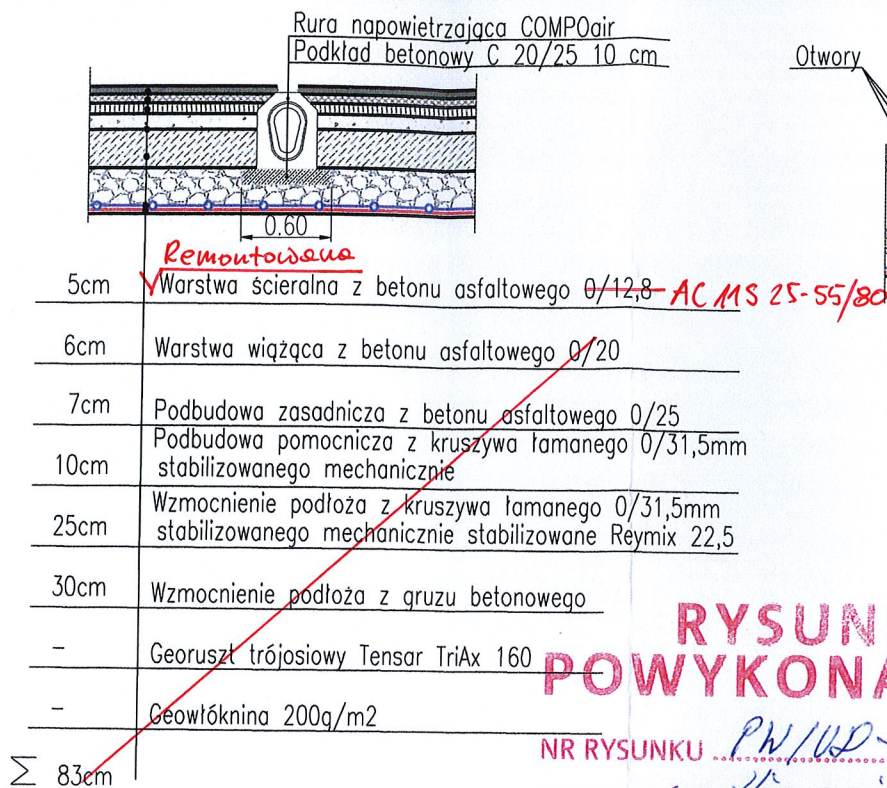 Rura napowietrzająca COMPOair
Podkład betonowy C 20/25 10 cm
Otwory
0.60
Remontowana
5cm Warstwa ścieralna z betonu asfaltowego 0/12,8 AC 11S 25-55/80
6cm Warstwa wiążąca z betonu asfaltowego 0/20
7cm Podbudowa zasadnicza z betonu asfaltowego 0/25
Podbudowa pomocnicza z kruszywa łamanego 0/31,5mm
10cm stabilizowanego mechanicznie
Wzmocnienie podłoża z kruszywa łamanego 0/31,5mm
25cm stabilizowanego mechanicznie stabilizowane Reymix 22,5
30cm Wzmocnienie podłoża z gruzu betonowego
- Georuszt trójosiowy Tensar TriAx 160
- Geowłóknina 200g/m2
Σ 83cm
RYSUN
POWYKONA
NR RYSUNKU PW/UD-